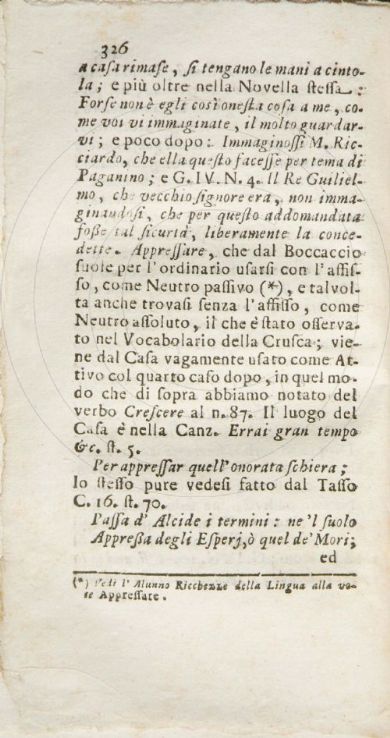 326
a casa rimase, si tengano le mani a cinto-
la; e più oltre nella Novella stessa.:
Forse non è egli così onesta cosa a me, co-
me voi vi immaginate, il molto guardar-
vi; e poco dopo: Immaginossi M. Ric-
ciardo, che ella questo facesse per tema di
Paganino; e G. IV. N. 4. Il Re Guiliel-
mo, che vecchio signore era, non imma-
ginandosi, che per questo addomandata
fosse tal sicurtà, liberamente la conce-
dette. Appressare, che dal Boccaccio
suole per l'ordinario usarsi con l'affis-
so, come Neutro passivo (*), e talvol-
ta anche trovasi senza l'affisso, come
Neutro assoluto, il che è stato osserva-
to nel Vocabolario della Crusca; vie-
ne dal Casa vagamente usato come At-
tivo col quarto caso dopo, in quel mo-
do che di sopra abbiamo notato del
verbo Crescere al n. 87. Il luogo del
Casa è nella Canz. Errai gran tempo
&c. st. 5.
Per appressar quell'onorata schiera;
lo stesso pure vedesi fatto dal Tasso
C. 16. st. 70.
Passa d'Alcide i termini: ne 'l suolo
Appressa degli Esperj, ò quel de' Mori;
ed
(*) Vedi l'Alunno Ricchezze della Lingua alla vo-
ce Appressare.